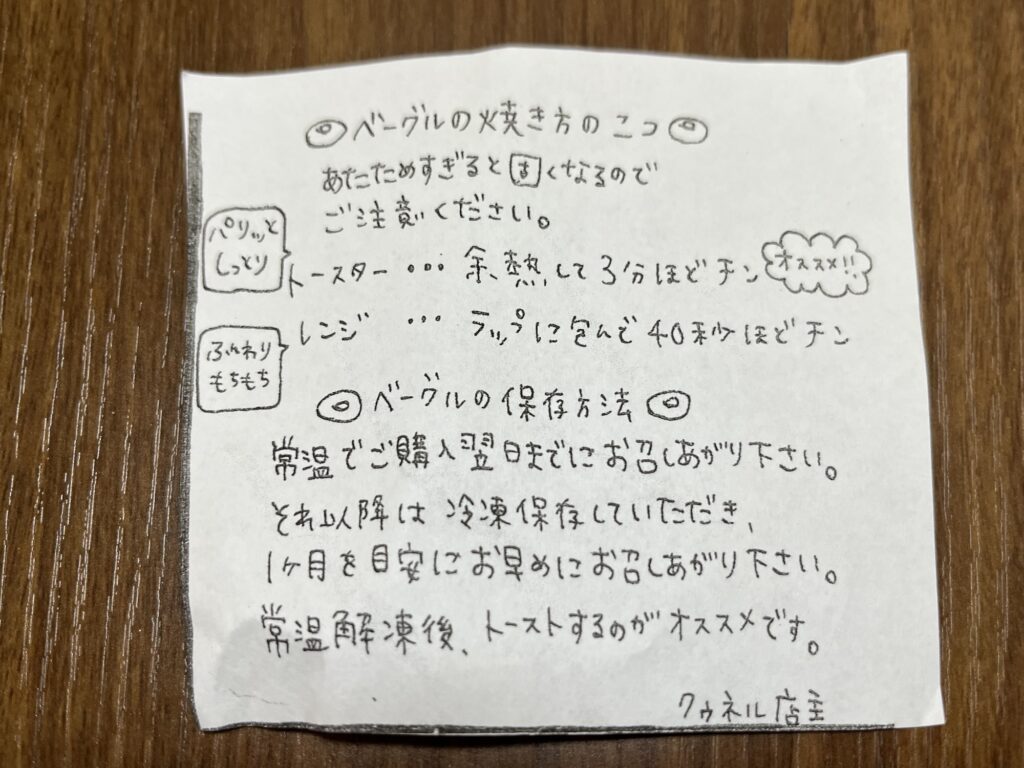 ベーグルの焼き方のこつ
あたためすぎると固くなるので
ご注意ください。
パリッと
しっとり
トースター … 余熱して3分ほどチン
オススメ!!
ふんわり
もちもち
レンジ … ラップに包んで40秒ほどチン
ベーグルの保存方法
常温でご購入翌日までにお召しあがり下さい。
それ以降は冷凍保存していただき、
1ヶ月を目安にお早めにお召しあがり下さい。
常温解凍後、トーストするのがオススメです。
クゥネル店主